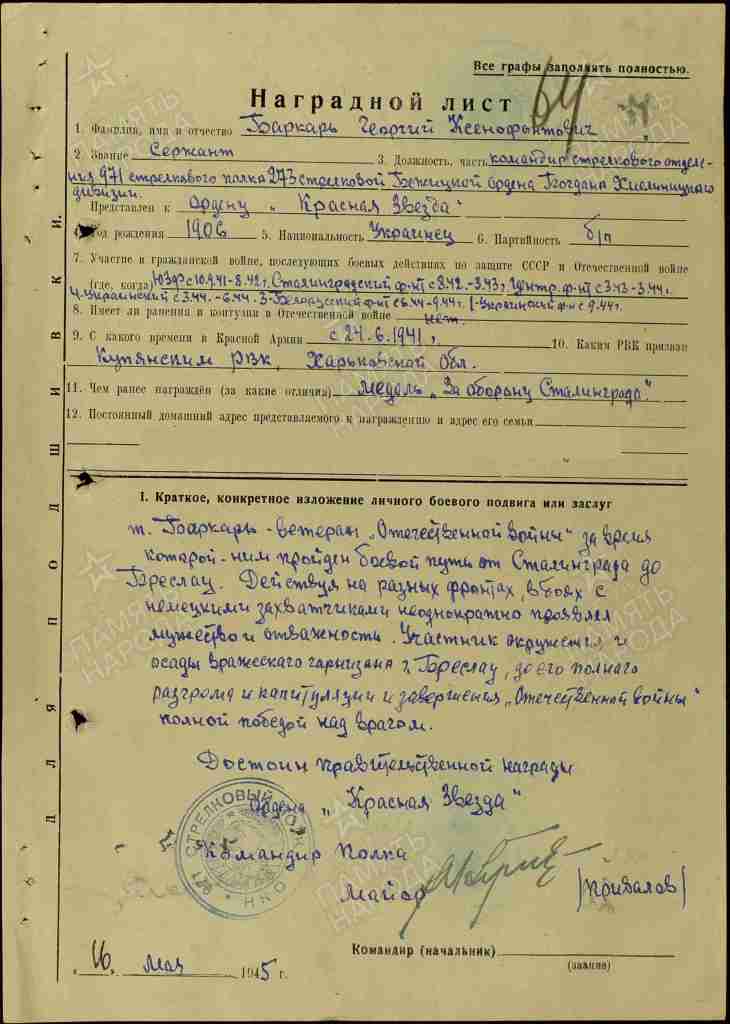 Все графы заполнять полностью.
64
Наградной лист
1. Фамилия, имя и отчество Баркарь Георгий Ксенофонтович
2. Звание Сержант 3. Должность, часть командир стрелкового отделе-
ния 971 стрелкового полка 273 стрелковой Бежицкой ордена Богдана Хмельницкого
дивизии.
Представлен к ордену „Красная Звезда"
4. Год рождения 1906 5. Национальность Украинец 6. Партийность б/п
7. Участие в гражданской войне, последующих боевых действиях по защите СССР и Отечественной войне
(где, когда) ЮЗФ с 10.9.41-8.42г. Сталинградский ф-нт с 8.42.-3.43г. Центр. ф-нт с 3.43-3.44г.
4-Украинский с 3.44.-6.44. 3-Белорусский ф-нт с 6.44-9.44г. 1-Украинский ф-н с 9.44г.
8. Имеет ли ранения и контузии в Отечественной войне нет.
9. С какого времени в Красной Армии с 24.6.1941г. 10. Каким РВК призван
Купянским РВК, Харьковской обл.
11. Чем ранее награждён (за какие отличия) Медаль „За оборону Сталинграда".
12. Постоянный домашний адрес представляемого к награждению и адрес его семьи
I. Краткое, конкретное изложение личного боевого подвига или заслуг
т. Баркарь - ветеран „Отечественной войны" за время
которой - ним пройден боевой путь от Сталинграда до
Бреслау. Действуя на разных фронтах, в боях с
немецкими захватчиками неоднократно проявлял
мужество и отважность. Участник окружения и
осады вражеского гарнизона г. Бреслау, до его полного
разгрома и капитуляции и завершения „Отечественной войны"
полной победой над врагом.
Достоин правительственной награды
Ордена „Красная Звезда"
Командир полка
Майор /Привалов/
Командир (начальник)
(звание)
„16" Мая 1945 г.
ДЛЯ ПОДШИВКИ.
СТРЕЛКОВЫЙ ПОЛК
971
НКО
ПАМЯТЬ НАРОДА